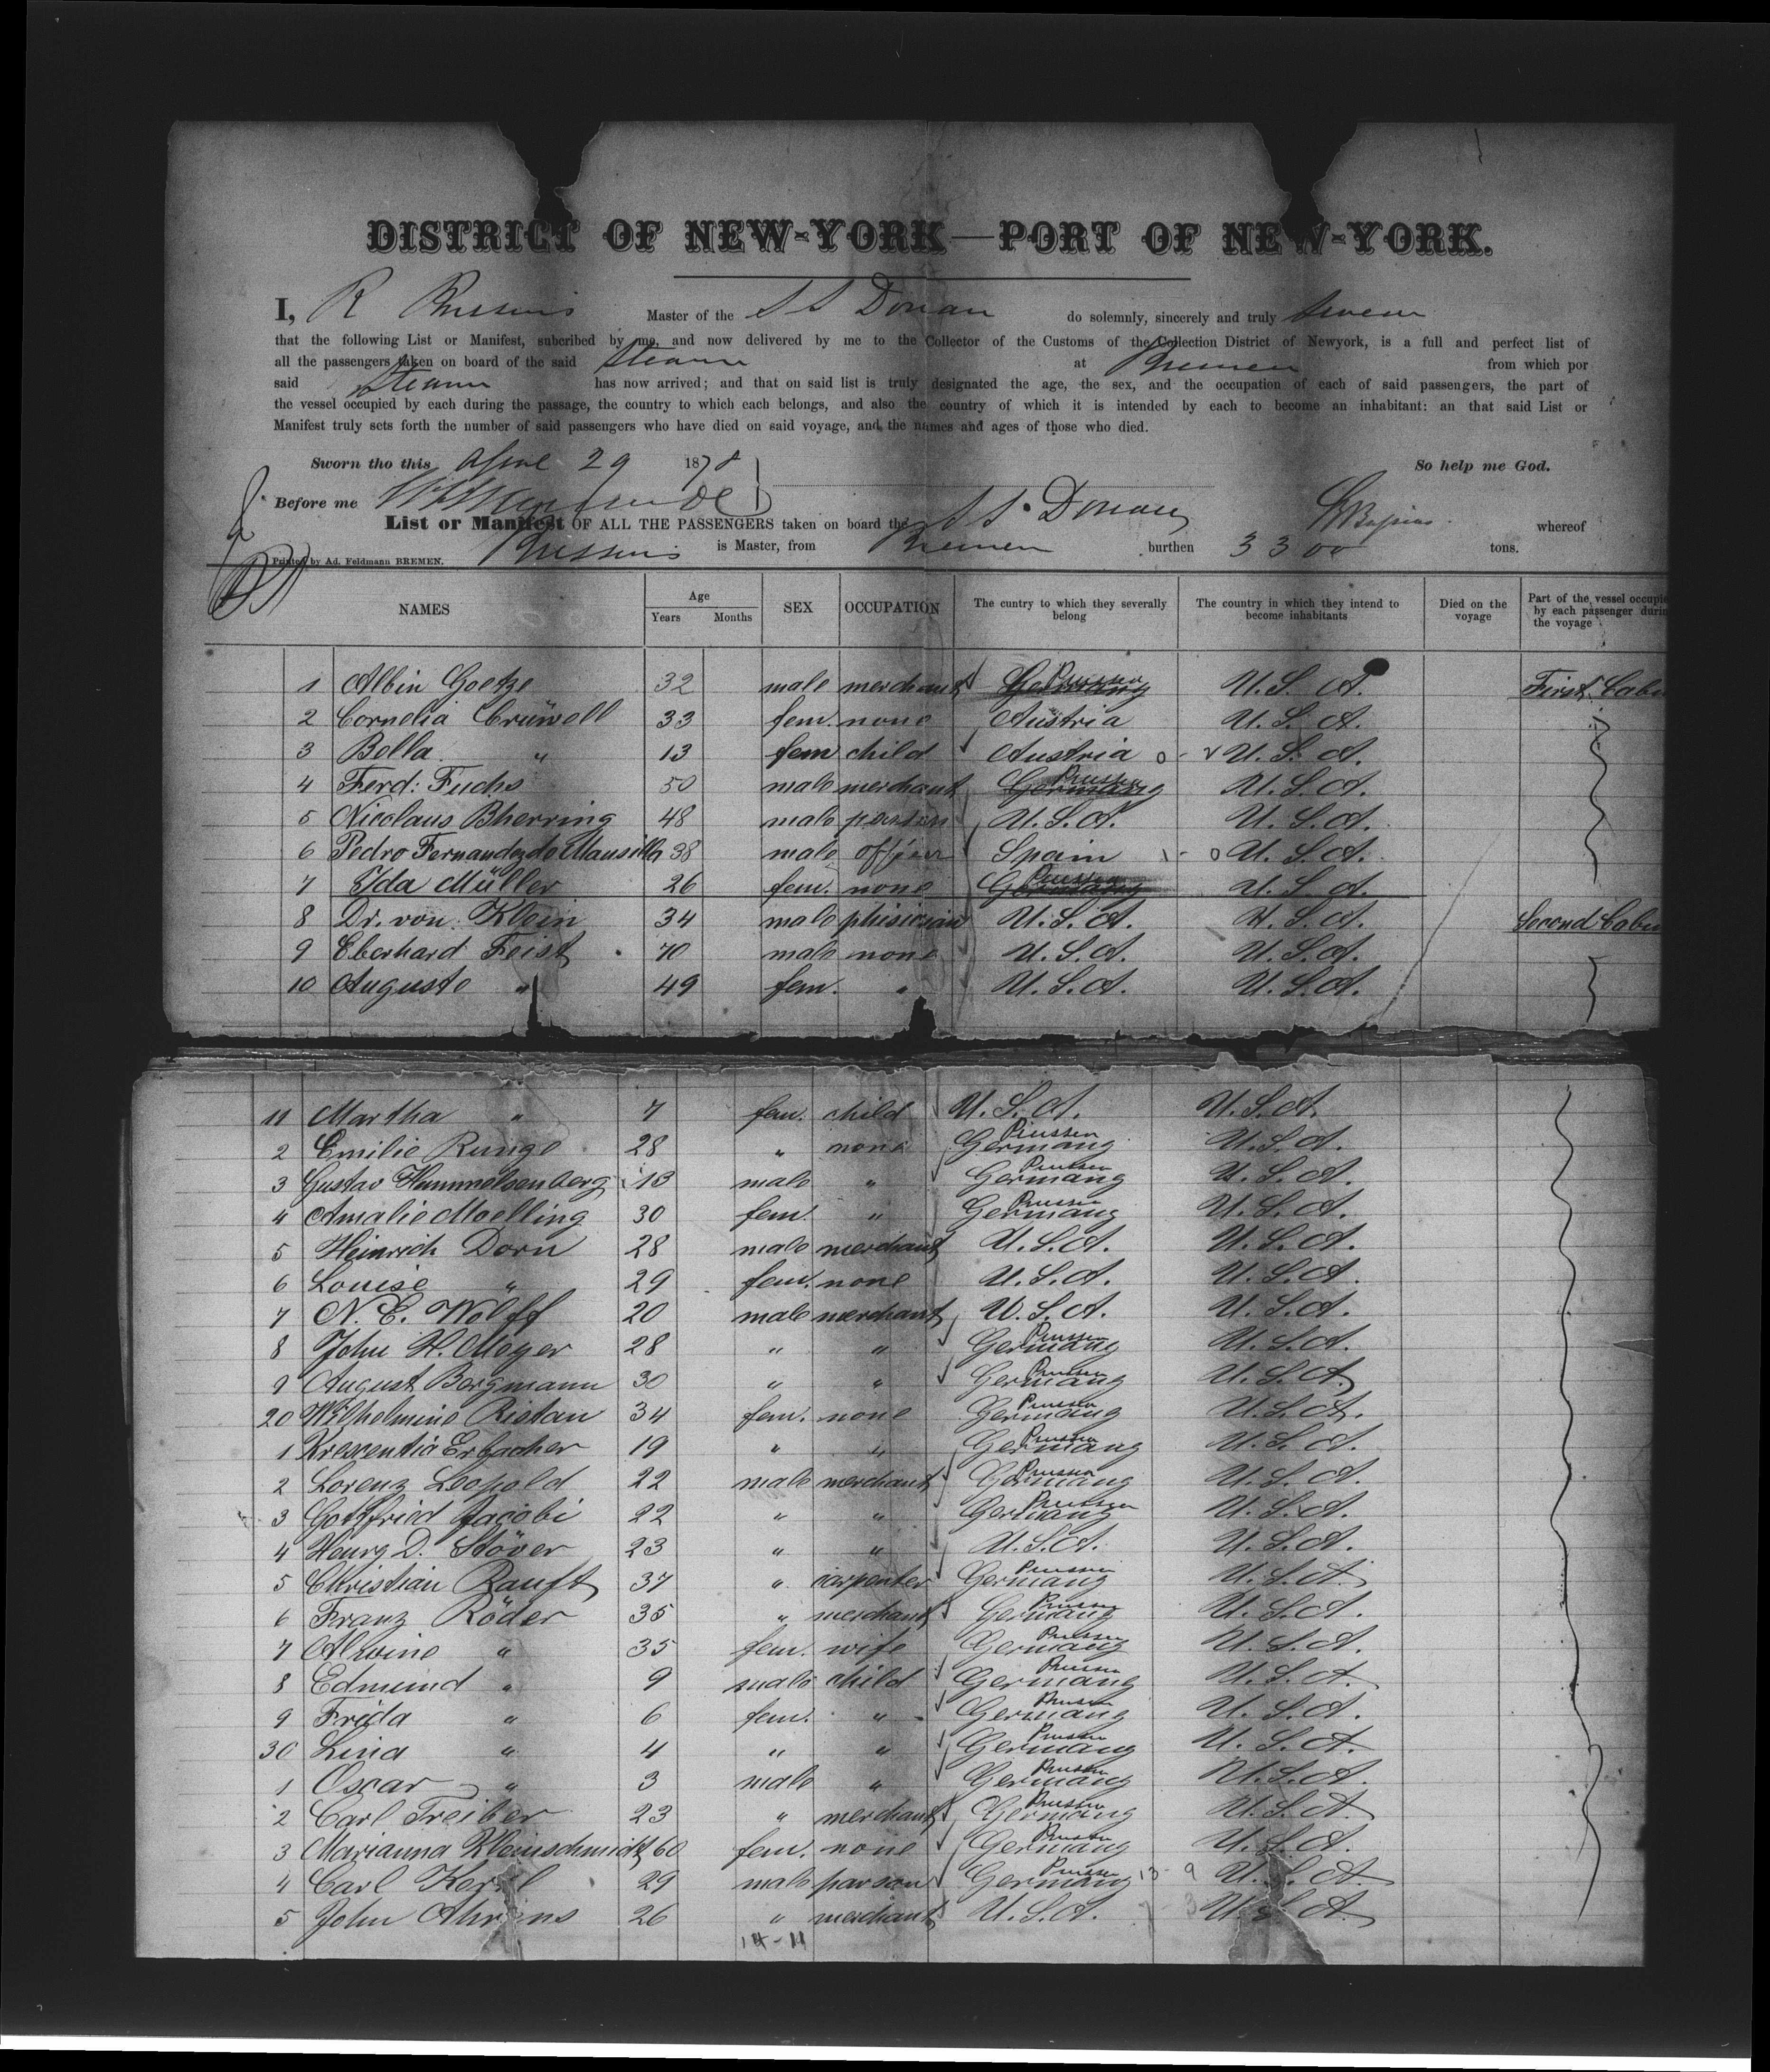 DISTRICT OF NEW-YORK—PORT OF NEW-YORK.
I, R Bussius Master of the S S Donau do solemnly, sincerely and truly swear
that the following List or Manifest, subcribed by me, and now delivered by me to the Collector of the Customs of the Collection District of Newyork, is a full and perfect list of
all the passengers taken on board of the said steamer at Bremen from which por
said steamer has now arrived; and that on said list is truly designated the age, the sex, and the occupation of each of said passengers, the part of
the vessel occupied by each during the passage, the country to which each belongs, and also the country of which it is intended by each to become an inhabitant: an that said List or
Manifest truly sets forth the number of said passengers who have died on said voyage, and the names and ages of those who died.
Sworn tho this April 29 1878 So help me God.
Before me
List or Manifest OF ALL THE PASSENGERS taken on board the S S. Donau whereof
Bussius is Master, from Bremen burthen 3300 tons.
Printed by Ad. Feldmann BREMEN.
NAMES Age Years Months SEX OCCUPATION The cuntry to which they severally belong The country in which they intend to become inhabitants Died on the voyage Part of the vessel occupie by each passenger durin the voyage
1 Albin Goetze 32 male merchant Germany Prussia U.S.A. First Cabi
2 Cornelia Crüwell 33 fem. none Austria U.S.A.
3 Bella " 13 fem child Austria U.S.A.
4 Ferd: Fuchs 50 male merchant Germany Prussia U.S.A.
5 Nicolaus Bherring 48 male U.S.A. U.S.A.
6 Pedro Fernandez de Mansilla 38 male officer Spain U.S.A.
7 Ida Müller 26 fem. none Germany Prussia U.S.A.
8 Dr. von Klein 34 male phisician U.S.A. U.S.A. Second Cabi
9 Eberhard Feist 70 male none U.S.A. U.S.A.
10 Auguste " 49 fem. " U.S.A. U.S.A.
11 Martha " 7 fem. child U.S.A. U.S.A.
2 Emilie Runge 28 " none Germany Prussia U.S.A.
3 Gustav Hammelsenberg 13 male " Germany Prussia U.S.A.
4 Amalie Moelling 30 fem. " Germany Prussia U.S.A.
5 Heinrich Dorn 28 male merchant U.S.A. U.S.A.
6 Louise " 29 fem. none U.S.A. U.S.A.
7 N. E. Wolff 20 male merchant U.S.A. U.S.A.
8 John H. Meyer 28 " " Germany Prussia U.S.A.
9 August Bergmann 30 " " Germany Prussia U.S.A.
20 Wilhelmine Rietau 34 fem. none Germany Prussia U.S.A.
1 Kresentia Erbacher 19 " " Germany Prussia U.S.A.
2 Lorenz Leopold 22 male merchant Germany Prussia U.S.A.
3 Gottfried Jacobi 22 " " Germany Prussia U.S.A.
4 Henry D. Stöver 23 " " U.S.A. U.S.A.
5 Christian Ranft 37 " carpenter Germany Prussia U.S.A.
6 Franz Röder 35 " merchant Germany Prussia U.S.A.
7 Alwine " 35 fem. wife Germany Prussia U.S.A.
8 Edmund " 9 male child Germany Prussia U.S.A.
9 Frida " 6 fem. " Germany Prussia U.S.A.
30 Lina " 4 " " Germany Prussia U.S.A.
1 Oscar " 3 male " Germany Prussia U.S.A.
2 Carl Treiber 23 " merchant Germany Prussia U.S.A.
3 Marianna Kleinschmidt 60 fem. none Germany Prussia U.S.A.
4 Carl 29 male parson Germany Prussia 13 9 U.S.A.
5 John Ahrens 26 " merchant U.S.A. 3 U.S.A.
14-11